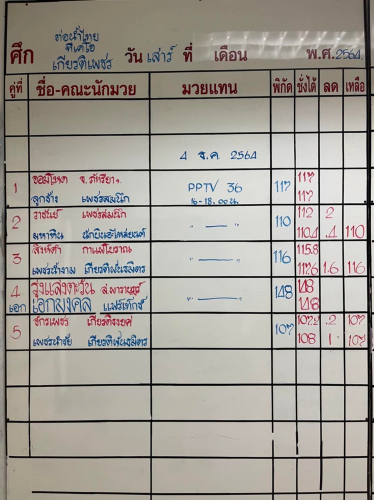 ท่อน้ำไทย
ทีเคโอ
ศึก เกียรติเพชร วัน เสาร์ ที่ เดือน พ.ศ. 2564
คู่ที่ ชื่อ-คณะนักมวย มวยแทน พิกัด ชั่งได้ ลด เหลือ
4 ธ.ค 2564
1 จอมโหด 117
ลูกช้าง เพชรสมนึก PPTV 36 117 117
16-18.00 น.
2 ราชันย์ เพชรสมนึก 112 2
มหาหิน " — " 110 110.4 .4 110
3 สิงห์ดำ กาแฟโบราณ 115.8
เพชรน้ำงาม เกียรติฟ้นธมิตร " — " 116 117.6 1.6 116
4 รุ่งแสงตะวัน ส.พารารุสร์ 148
เอก เอกมงคล " — " 148 148
5 จักรเพชร 107.2 .2 107
เพชรนำชัย เกียรติฟ้นธมิตร 107 108 1. 107